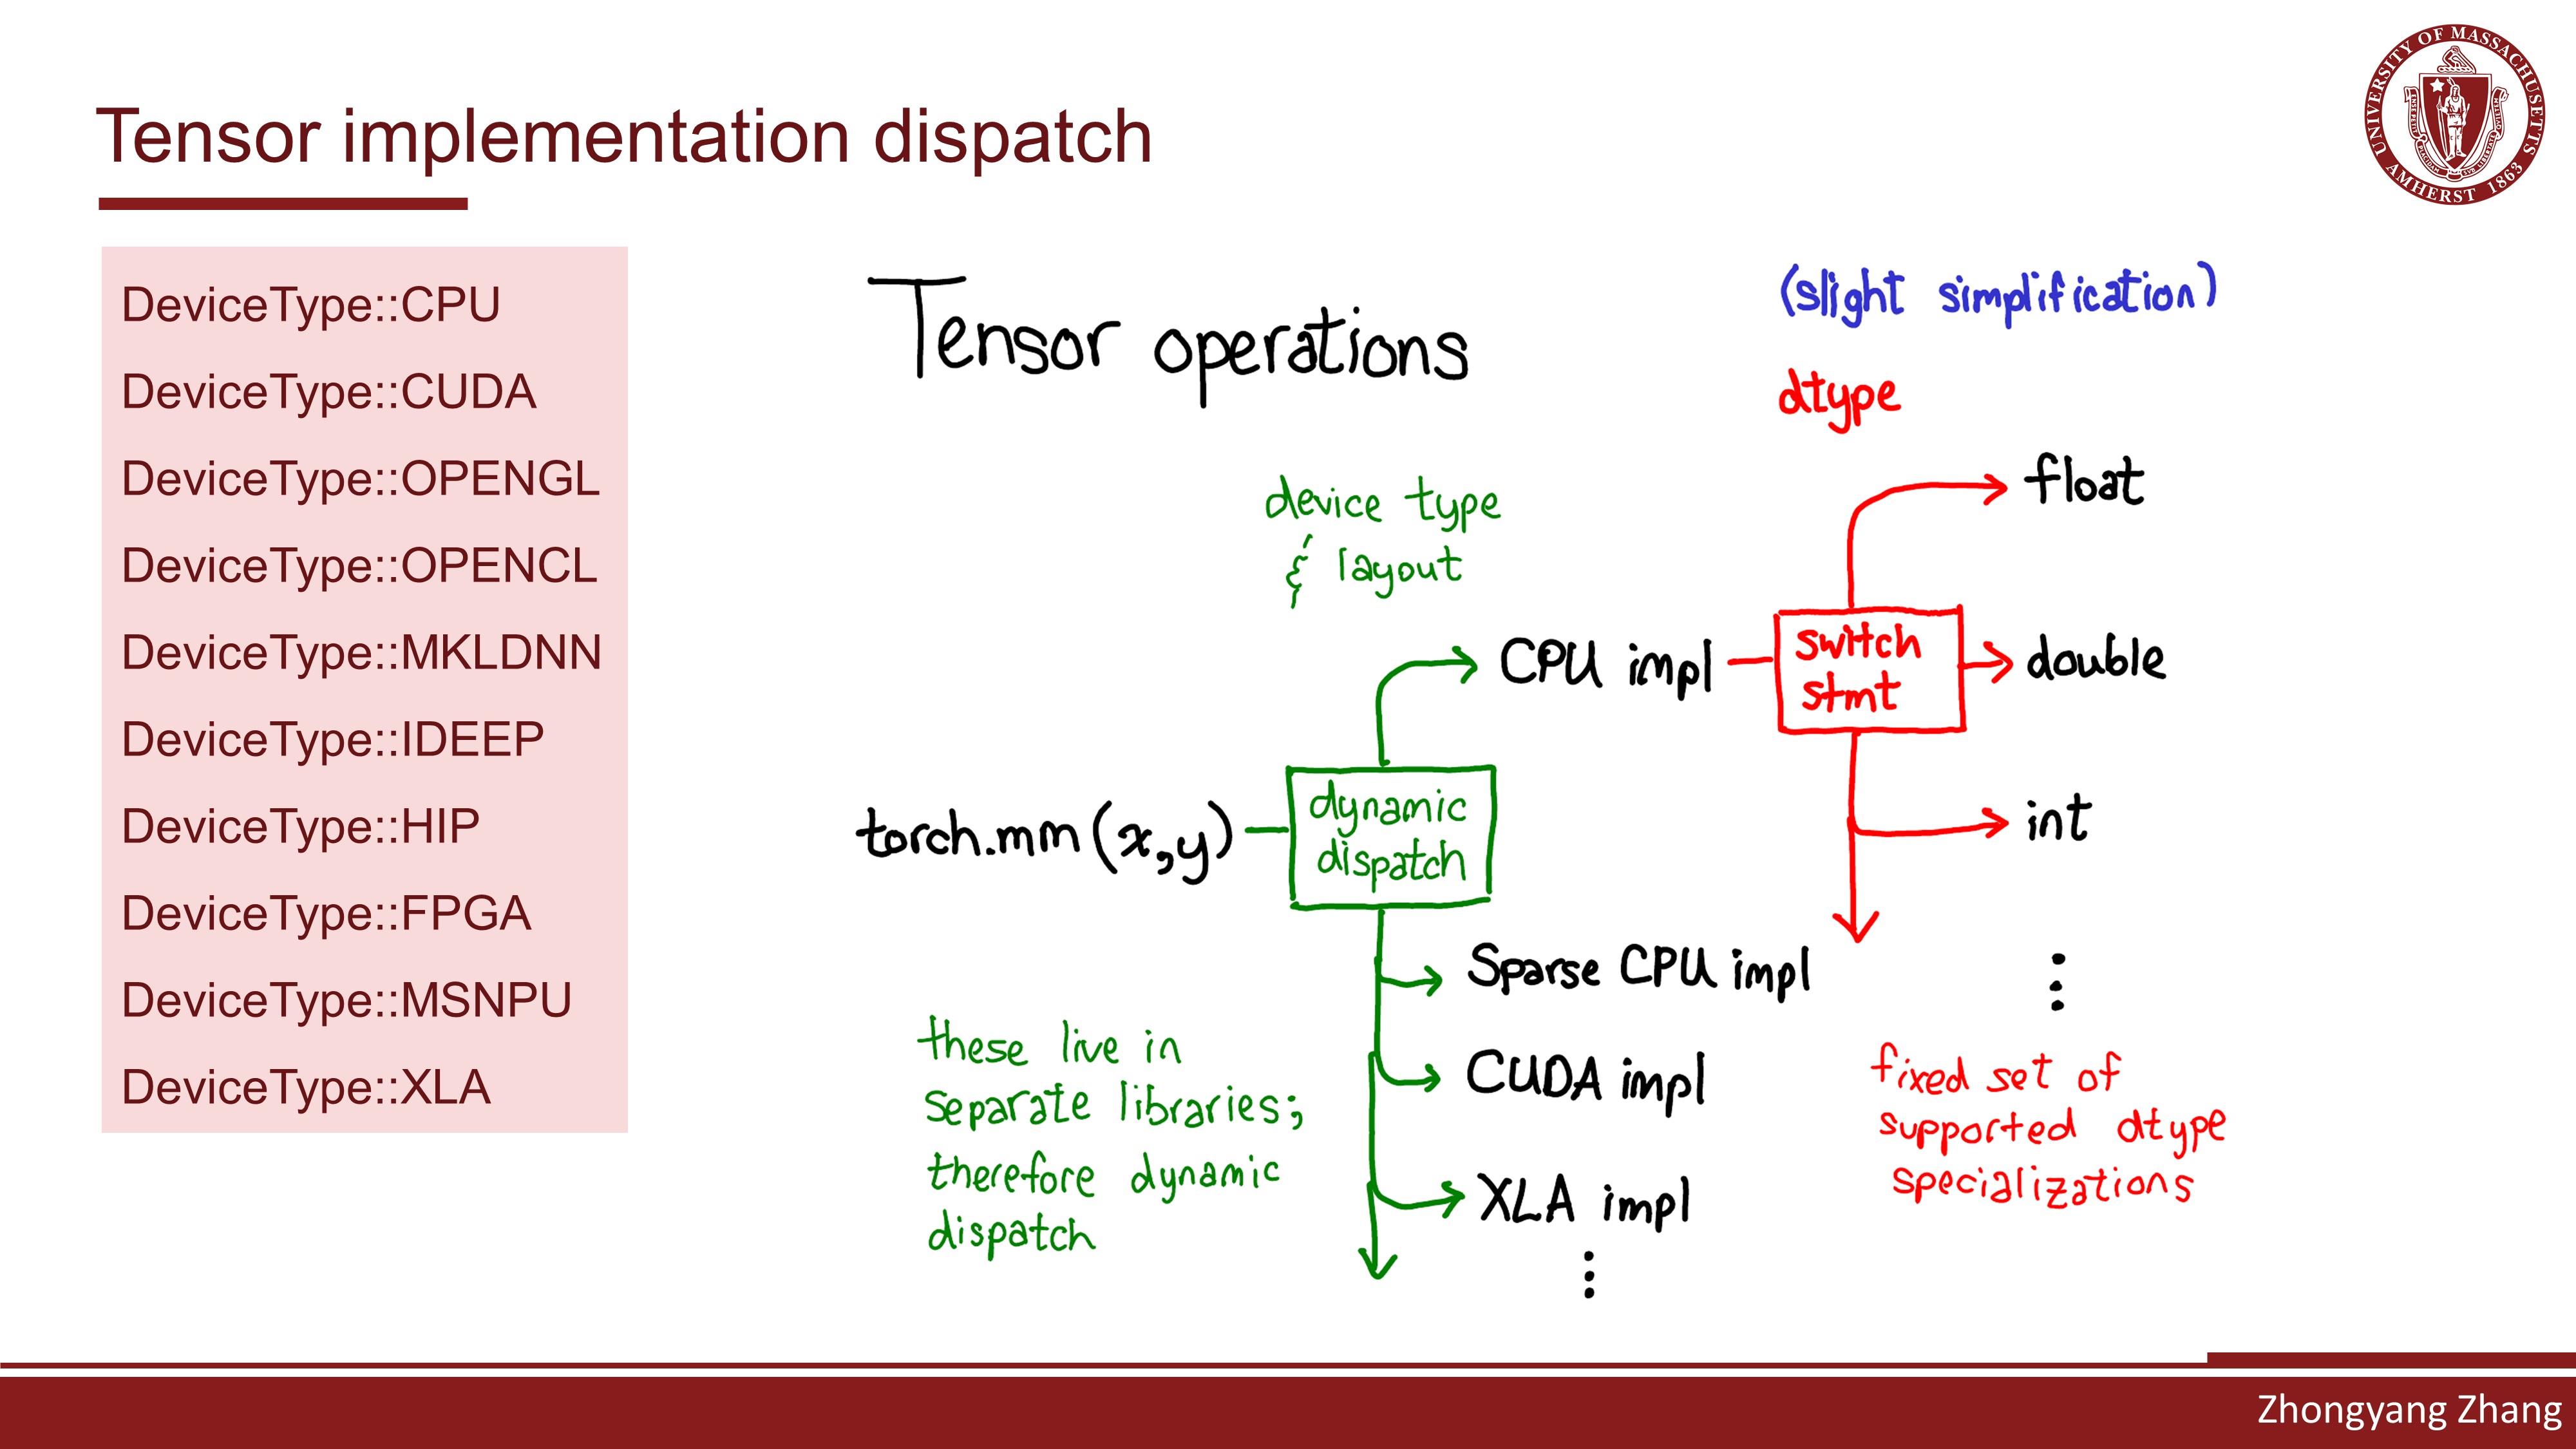 Tensor implementation dispatch
UNIVERSITY OF MASSACHUSETTS
AMHERST 1863
DeviceType::CPU
DeviceType::CUDA
DeviceType::OPENGL
DeviceType::OPENCL
DeviceType::MKLDNN
DeviceType::IDEEP
DeviceType::HIP
DeviceType::FPGA
DeviceType::MSNPU
DeviceType::XLA
Tensor operations
(slight simplification)
dtype
device type
& layout
float
CPU impl
switch
stmt
double
torch.mm(x,y)
dynamic
dispatch
int
Sparse CPU impl
CUDA impl
XLA impl
these live in
separate libraries;
therefore dynamic
dispatch
fixed set of
supported dtype
specializations
Zhongyang Zhang